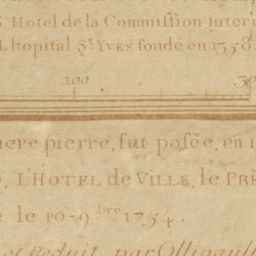 Hotel de la Commission Interi
L'hopital St. Yves fondé en 1358.
100
iere pierre, fut posée, en
L'HOTEL de VILLE, le PRÉ
le 10 9.bre 1754.
Reduit par Ollivault